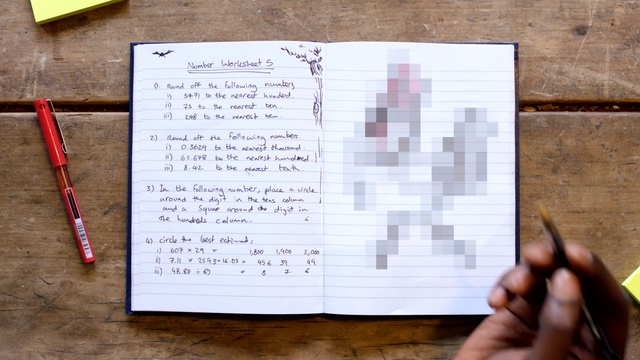 Number Worksheet 5
1). Round off the following numbers
i) 5471 to the nearest hundred.
ii) 73 to the nearest ten
iii) 248 to the nearest ten.
2) Round off the following numbers.
i) 0.3624 to the nearest thousand
ii) 61.678 to the nearest hundred
iii) 8.42 to the nearest tenth.
3) In the following number, place a circle
around the digit in the tens column
and a square around the digit in
the hundreds column.
4) circle the best estimate:
i) 607 × 29 = 1,800 1,900 2,000
ii) 7.11 × + 16.05 = 39 49
iii) 48.87 ÷ = 8 7 6